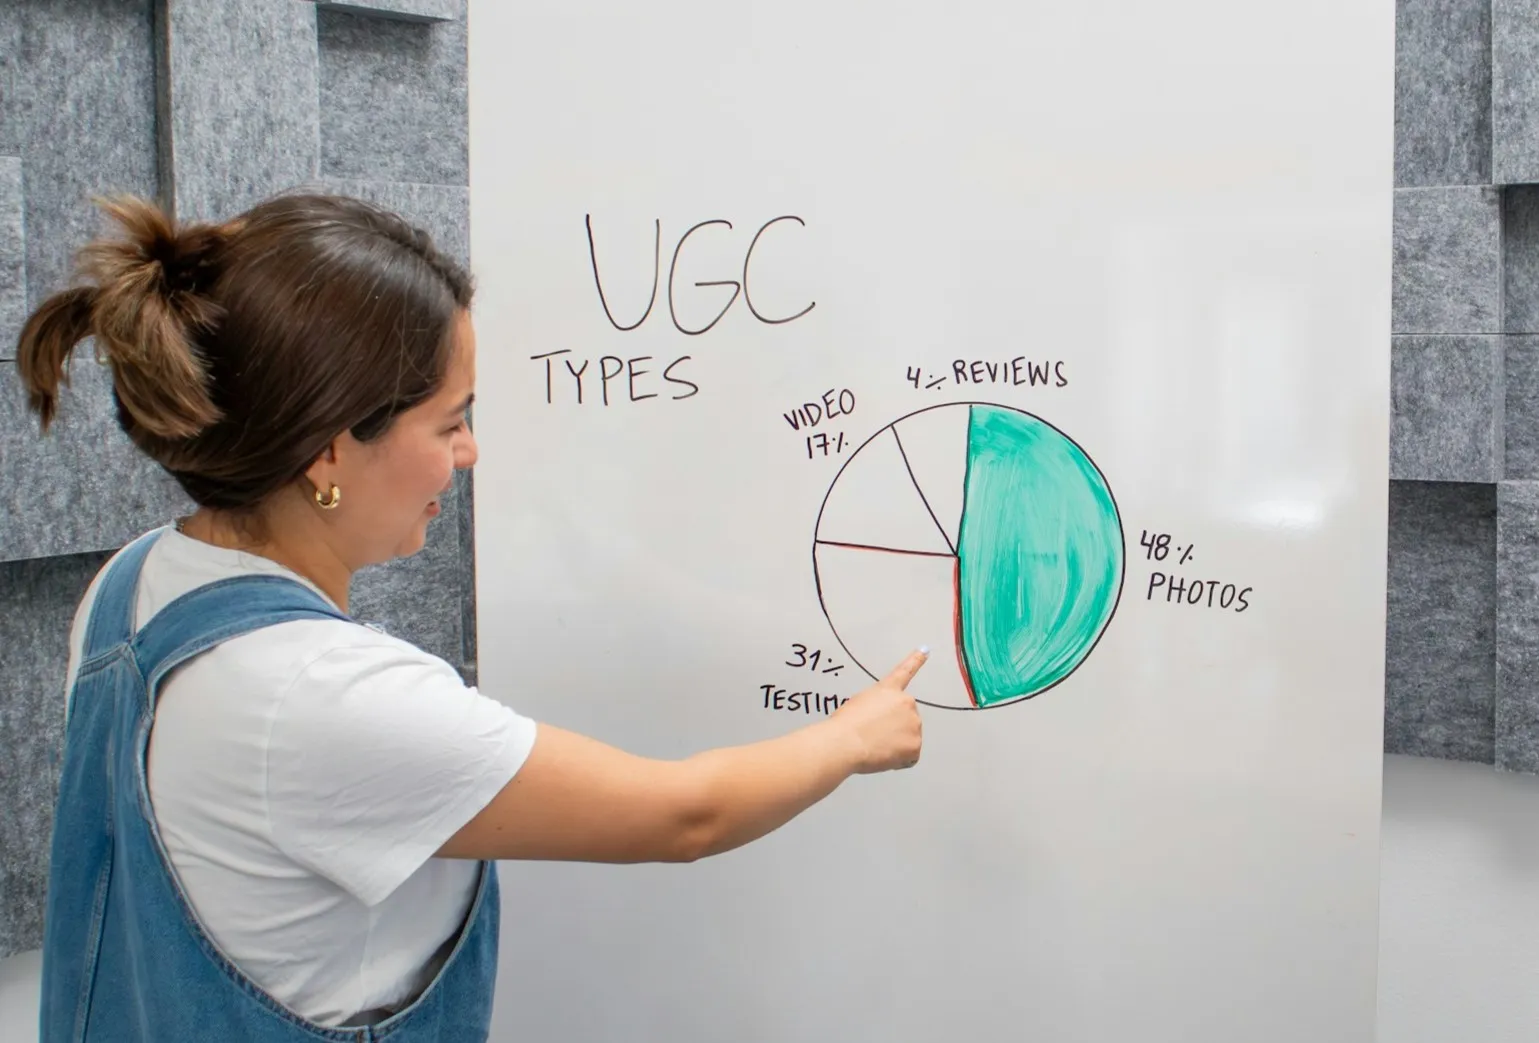 UGC
TYPES
4% REVIEWS
VIDEO
17%
48%
PHOTOS
31%